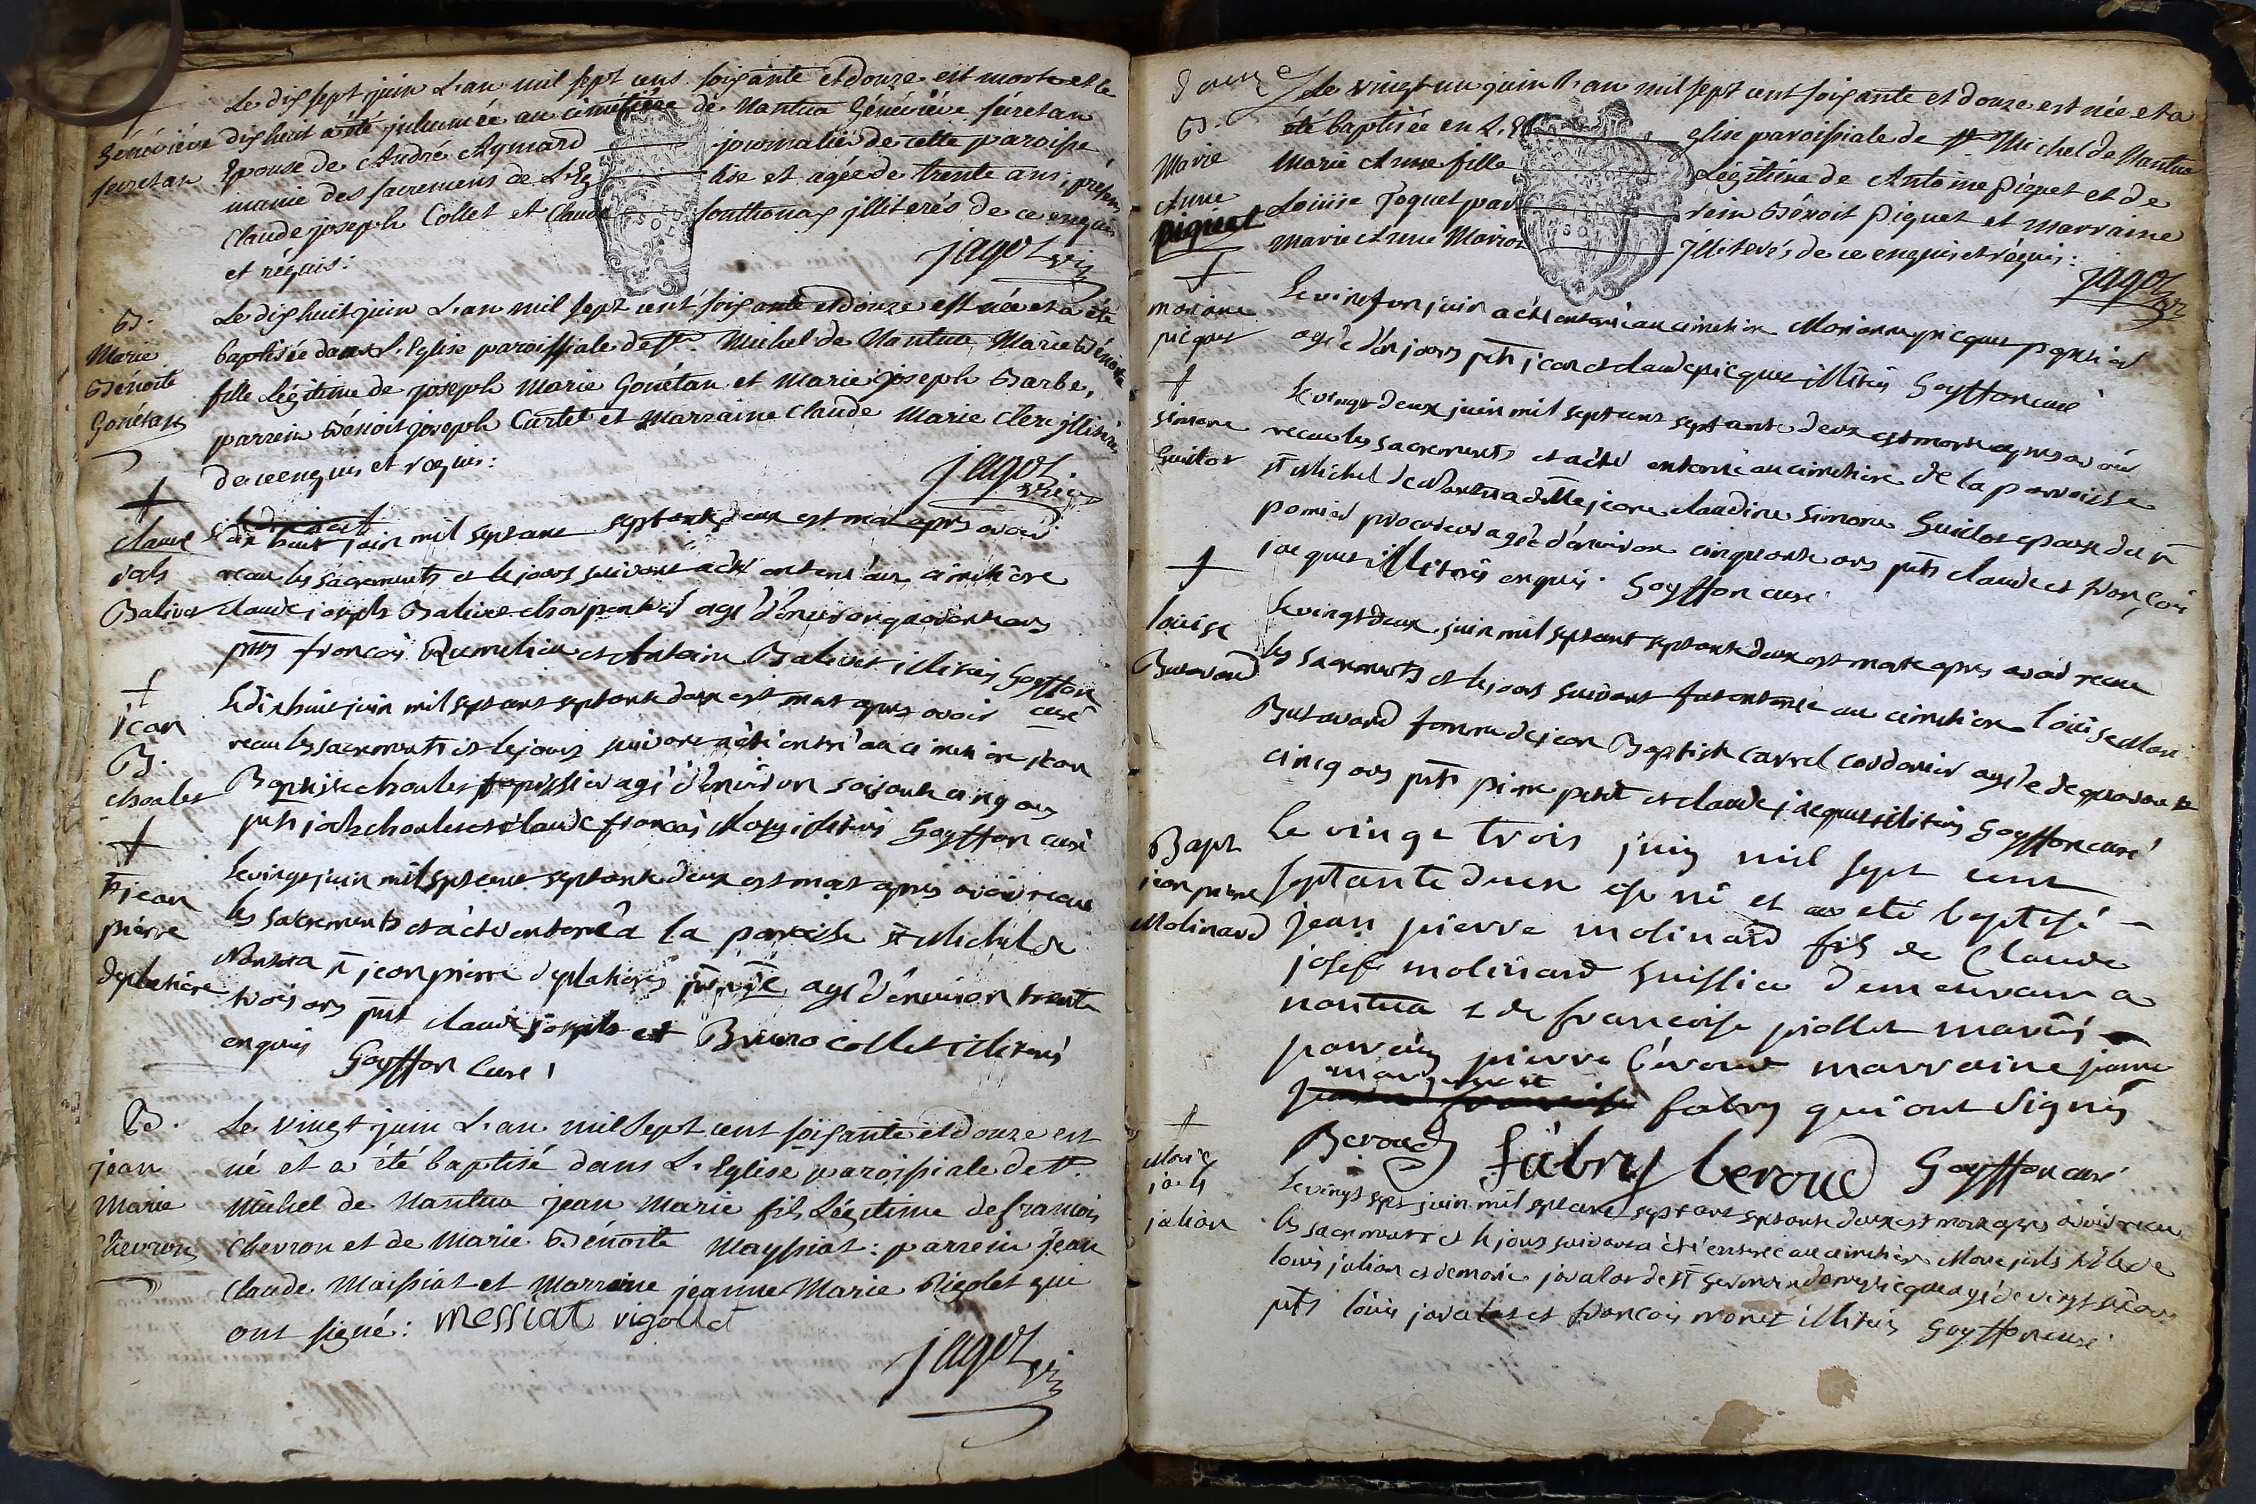 †
Généviéve
secretan
Le dix sept juin L'an mil sept cens soixante et douze est morte et le
dix huit a été juhumée au cimétiére de Nantua Généviéve sécretan
Epouse de André Aymard journalié de cette paroisse
munie des sacremens de L'Eglise et agée de trente ans, présens
Claude joseph Collet et Claude jlliterés de ce enquis
et réquis:
jagot vic
B.
Marie
Bénoite
Gonétan
Le dix huit juin L'an mil sept cent soixante et douze est née et a été
baptisée dans L'Eglise paroissiale de St. Michel de Nantua Marie Bénoite
fille Légitime de joseph Marie Gonétan et Marie joseph Barbe,
parrein Bénoit joseph Curtet et Marraine Claude Marie Clerc jlliterés
de ce enquis et réquis:
jagot vic
†
claude
josh
Balivet
Le dix huit juin mil sept cent septante deux est mort apres avoir
receu les sacrements et le jours suivant a été enterré au cimetière
claude joseph Balivet charpentier agé d'environ quarante ans
pnts françois et Antoine Balivet illiterés Goyffon
curé
†
jean
B.
charles
Le dixhuit juin mil sept cent septante deux est mort apres avoir
receu les sacrements et le jours suivant a été enterré au cimetière jean
Baptiste charles tapissier agé d'environ soixante cinq ans
pnts josh charles et claude françois illiterés Goyffon curé
†
Sr jean
pierre
deplatière
Le vingt juin mil sept cent septante deux est mort apres avoir receu
les sacrements et a été enterré a la paroisse St Michel de
Nantua Sr jean pierre deplatières agé d'environ trente
trois ans pnt claude joseph et Bruno collet illiterés
enquis Goyffon curé
B.
jean
Marie
Chevron
Le vingt juin L'an mil sept cent soixante et douze est
né et a été baptisé dans L'Eglise paroissiale de St.
Michel de Nantua jean Marie fils Légitime de francois
Chevron et de Marie Bénoite Mayssiat: parrein jean
Claude Maissiat et Marraine jeanne Marie Rigolet qui
ont signé: messiat rigollet
jagot vic
douze
B.
Marie
Anne
piquet
Le vingt un juin L'an mil sept cent soixante et douze est née et a
été baptisée en L'Eglise paroissiale de St Michel de Nantua
Marie Anne fille Légitime de Antoine piquet et de
Louise Joquet parrein Bénoit piquet et marraine
Marie Anne jlliterés de ce enquis et réquis:
jagot vic
†
mariane
picquet
Le vingt un juin a été enterré au cimetière Marianne picquet
agée d'un jours pnts jean et claude picquet illiterés Goyffon curé
†
simone
Guillot
Le vingt deux juin mil sept cent septante deux est morte apres avoir
receu les sacrements et a été enterrée au cimetière de la paroisse
St Michel de Nantua dlle jeane claudine simone Guillot epouse du Sr
procureur agée d'environ cinquante ans pnts claude et françois
jacquet illiterés enquis. Goyffon curé
†
louise
Butavand
Le vingt deux juin mil sept cent septante deux est morte apres avoir receu
les sacrements et le jours suivant fut enterrée au cimetière
Butavand femme de jean Baptiste carrel cordonier agée de quarante
cinq ans pnts pierre petit et claude jacquet illiterés Goyffon curé
Bapt
jean pierre
Molinard
Le vingt trois juin mil sept cent
septante deux est né et a eté baptisé
jean pierre molinard fils de Claude
josef molinard huissier demeurant a
nantua & de francoise piollet mariés
parrein pierre béroud marraine jeanne
marguerite
fabry qui ont signés
Beroud fabry beroud Goyffon curé
†
Marie
josh
jalion
Le vingt sept juin mil sept cent septante deux est mort apres avoir receu
les sacrements et le jours suivant a été enterré au cimetière
louis jalion et de marie agé de vingt ans
pnts louis et françois illiterés Goyffon curé